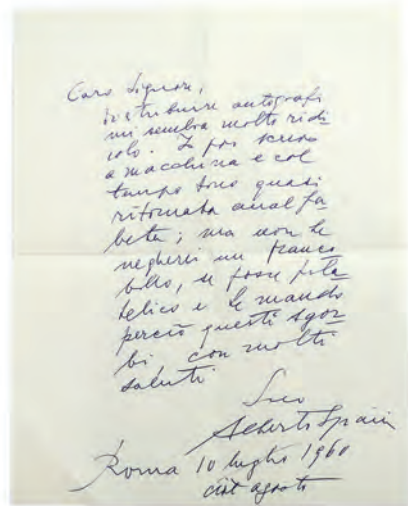 Caro Signore,
distribuire autografi
mi sembra molto ridi
colo. Io poi scrivo
a macchina e col
tempo sono quasi
ritornato analfa
beta; ma non le
negherei un franco
bollo, se fosse fila
telico e le mando
perciò questi sgor
bi con molti
saluti
Suo
Alberto Spaini
Roma 10 luglio 1960
cioè agosto